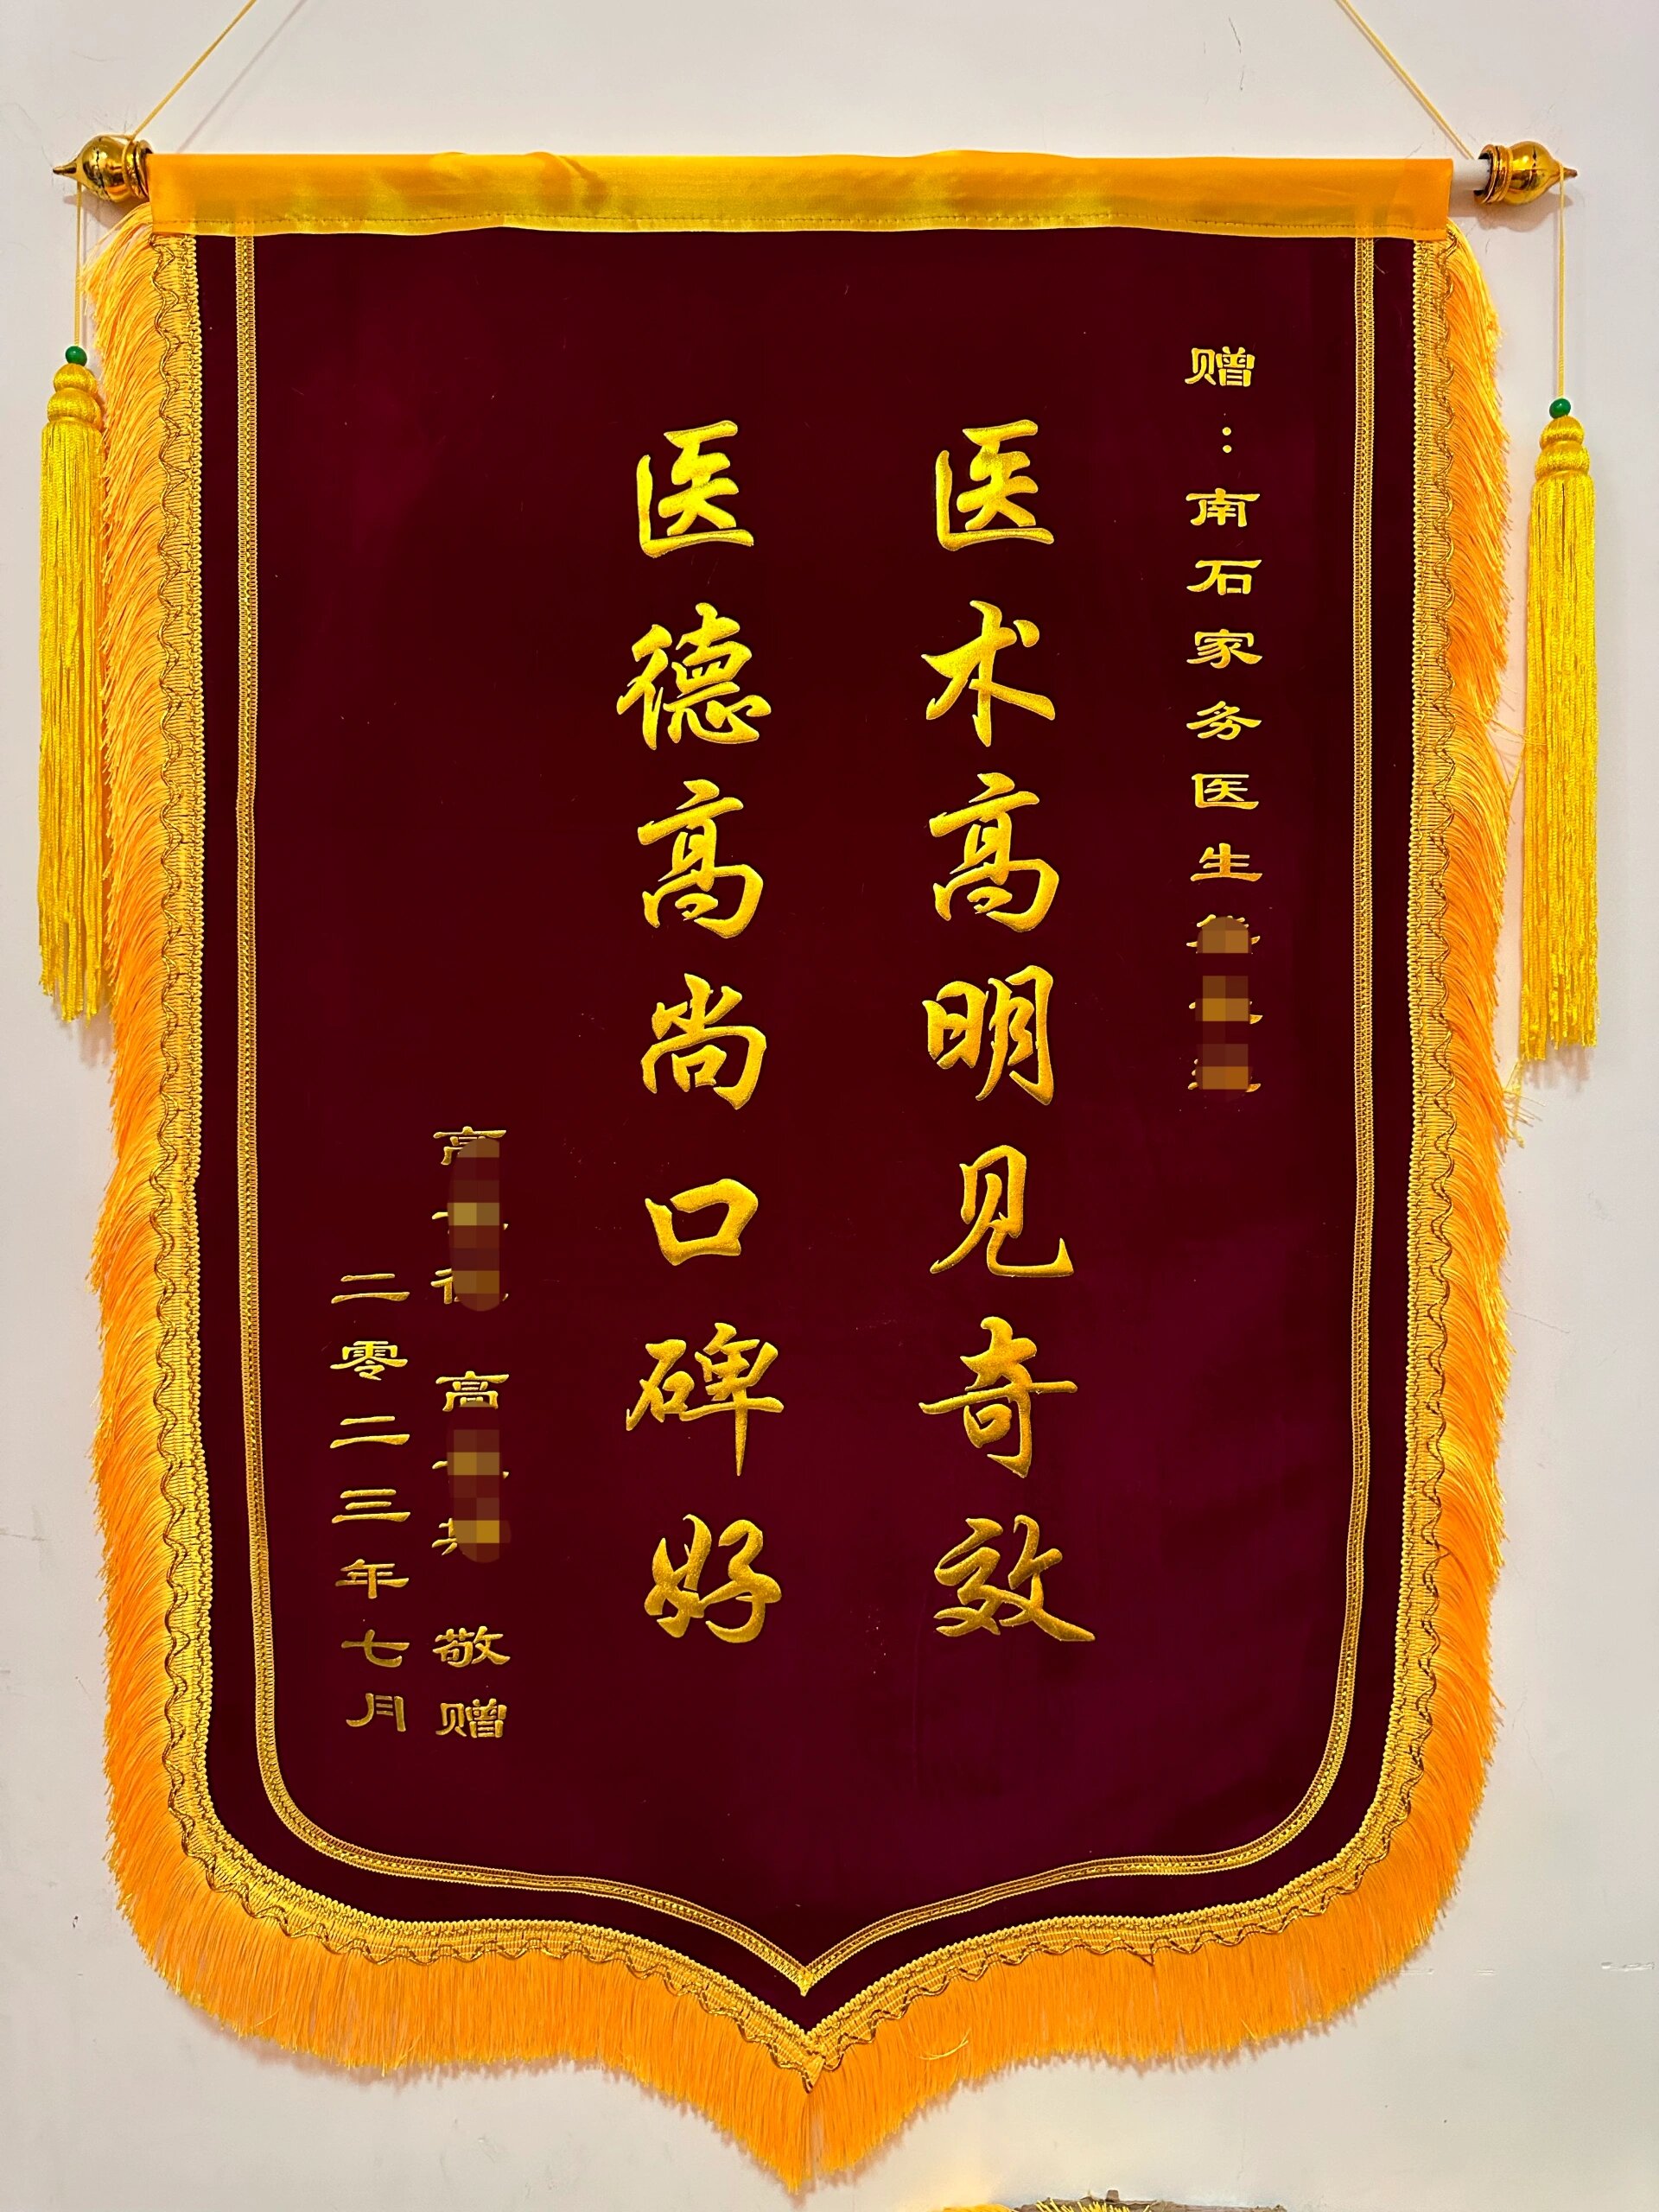 赠：南石家务医生
医术高明见奇效
医德高尚口碑好
高 高 敬赠
二零二三年七月